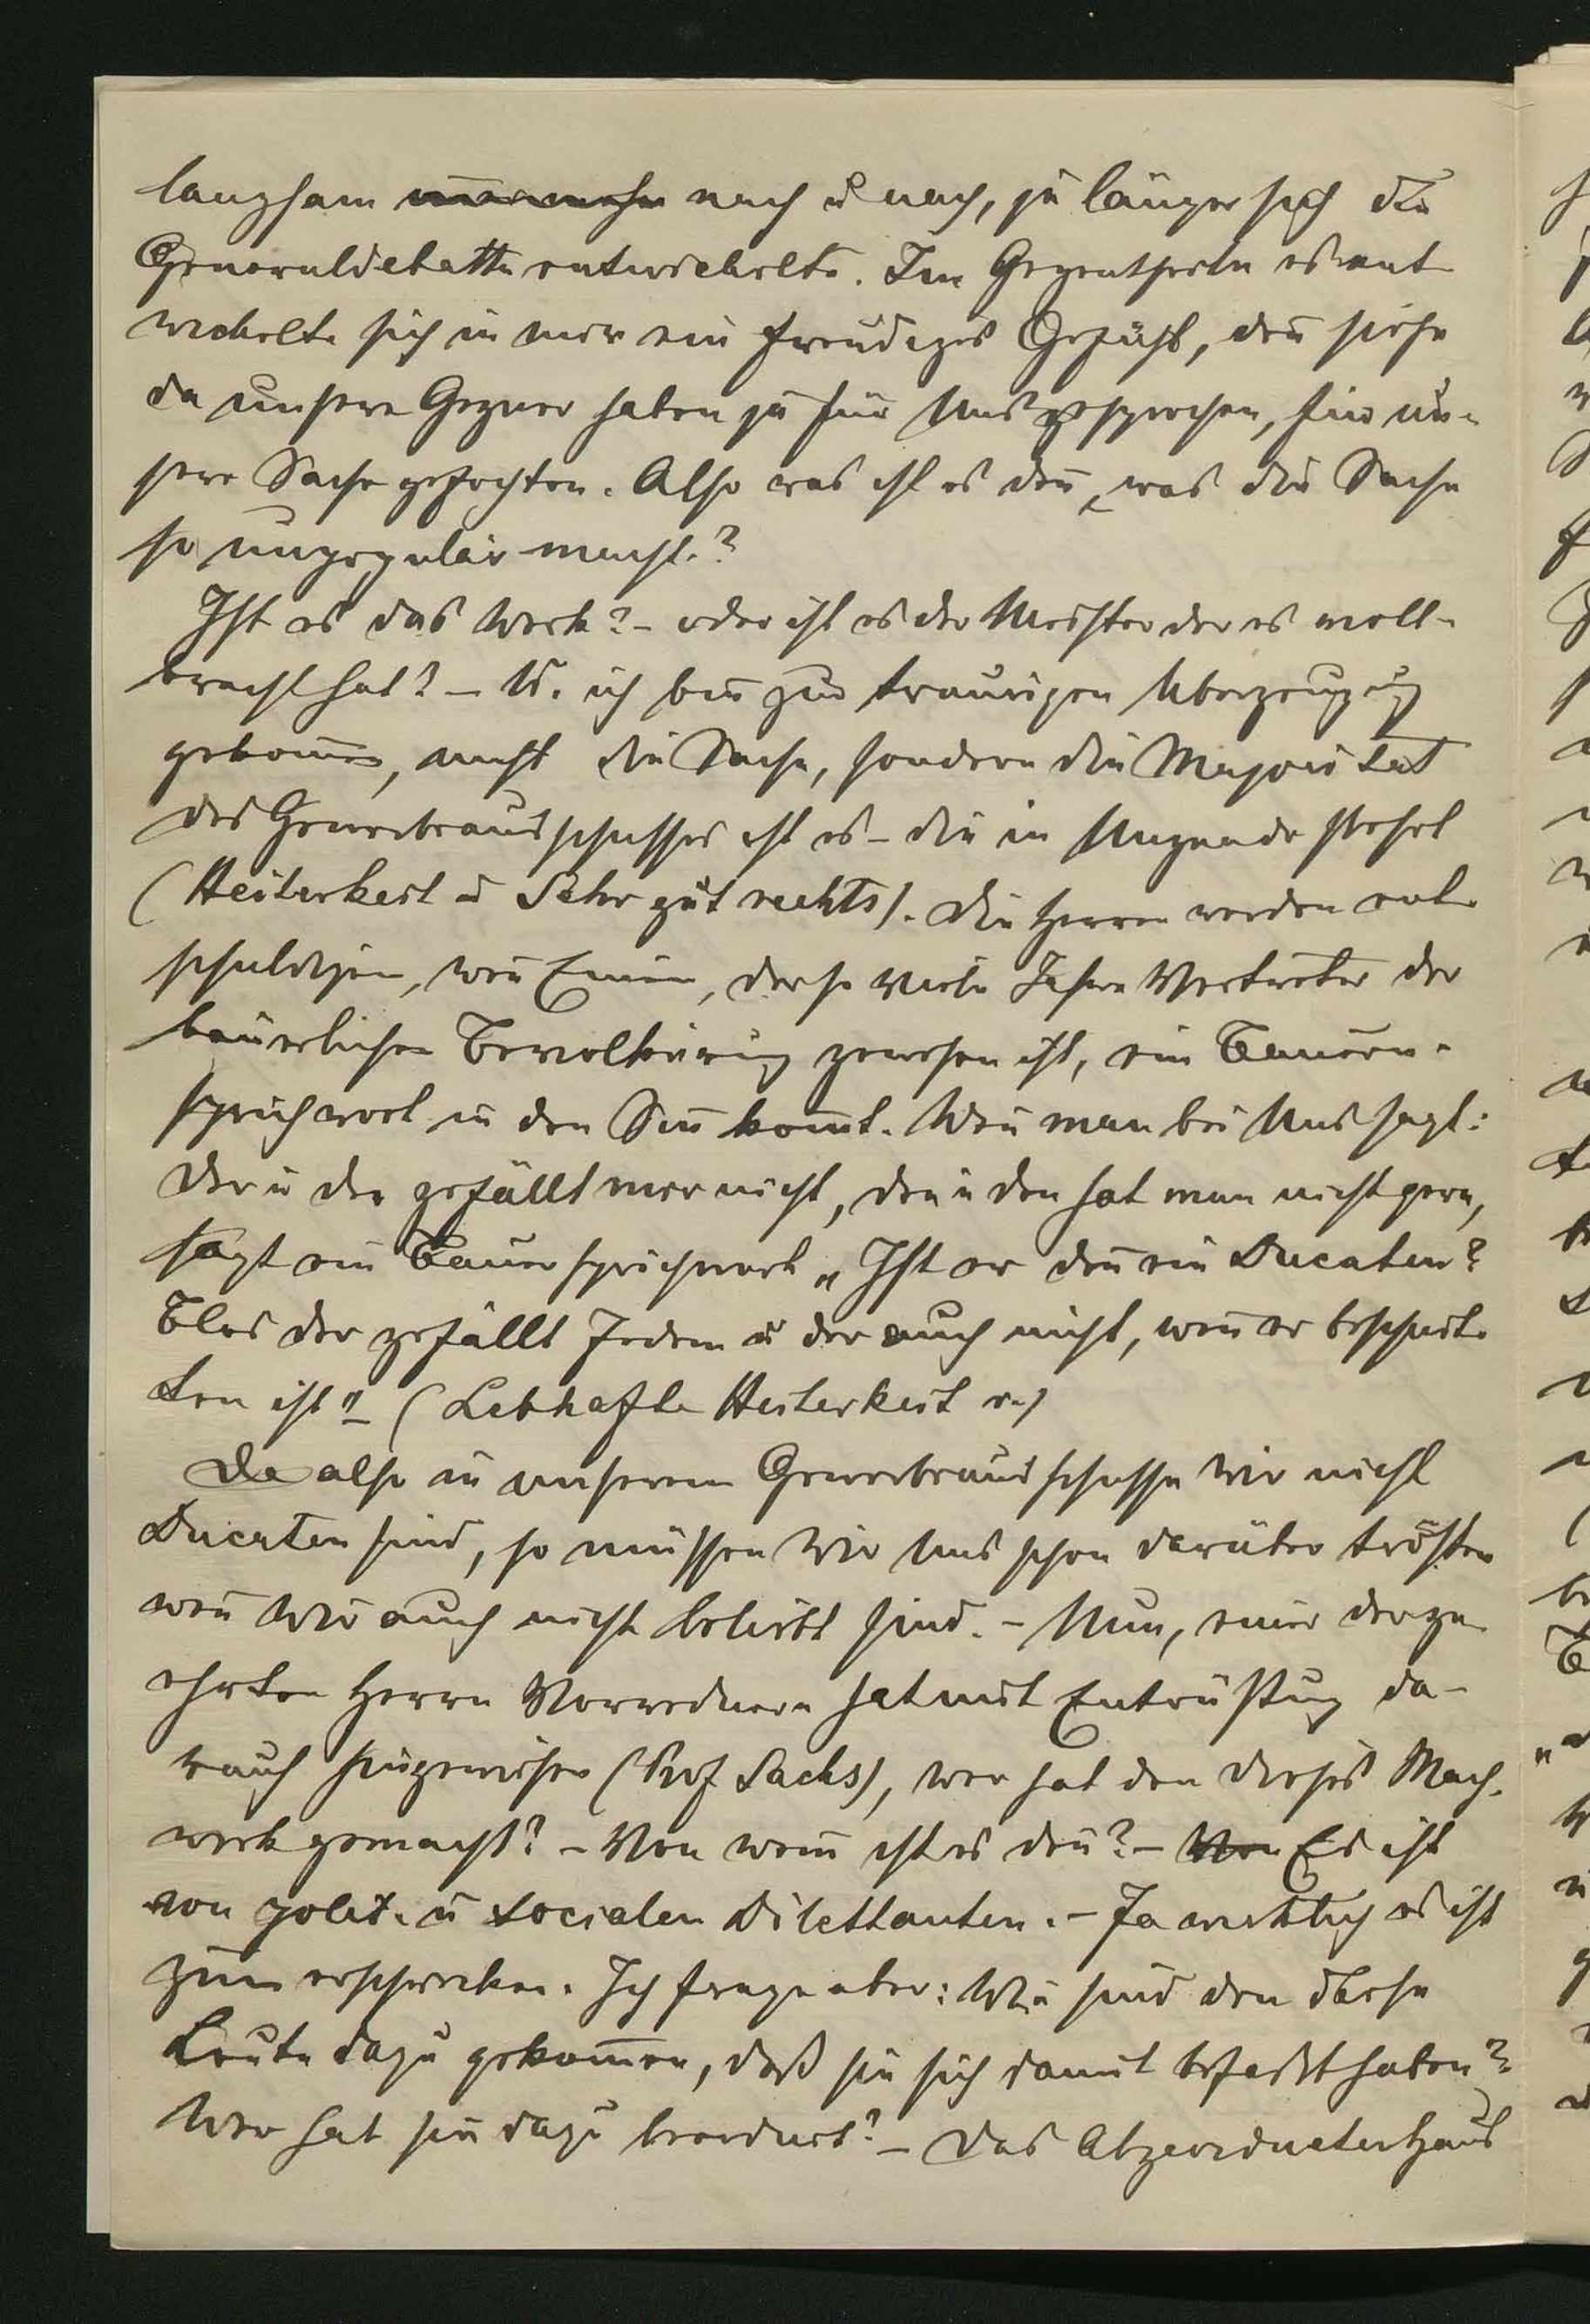 langsam nach u nach, je länger sich die
Generaldebatte entwickelte. Im Gegentheile es ent-
wickelte sich in mir ein freudiges Gefühl, deñ siehe
da unsere Gegner haben ja für Uns gesprochen, für un-
sere Sache gefochten. Also was ist es deñ, was die Sache
so unpopulär macht.?
Ist es das Werk? – oder ist es der Meister der es voll-
bracht hat? – U. ich bin zur traurigen Uberzeugung
gekom̄en, nicht die Sache, sondern die Majorität
des Gewerbeausschusses ist es – die in Ungnade steht
(Heiterkeit u Sehr gut rechts). Die Herren werden ent-
schuldigen, weñ Einem, der so viele Jahre Vertreter der
bäuerlichen Bevölkerung gewesen ist, ein Bauern-
sprichwort in den Siñ kom̄t. Weñ man bei Uns sagt:
Der u der gefällt mir nicht, den u den hat man nicht gern,
sagt ein Bauersprichwort „Ist er deñ ein Ducaten?
Blos der gefällt Jedem u der auch nicht, weñ er beschnit-
ten ist" – (Lebhafte Heiterkeit r.)
Da also in unserem Gewerbeausschusse Wir nicht
Ducaten sind, so müssen Wir Uns schon darüber trösten
weñ Wir auch nicht beliebt sind. – Nun, einer der ge-
ehrten Herrn Vorrednern hat mit Entrüstung da-
rauf hingewiesen (Prof Sachs), wer hat den dieses Mach-
werk gemacht? – Von wem ist es deñ? – Von Es ist
von polit. u socialen Dilettanten. – Ja wirklich es ist
zum erschrecken. Ich frage aber: Wie sind den diese
Leute dazu gekom̄en, daß sie sich damit befaßt haben?
Wer hat sie dazu beordert? – Das Abgeordnetenhaus